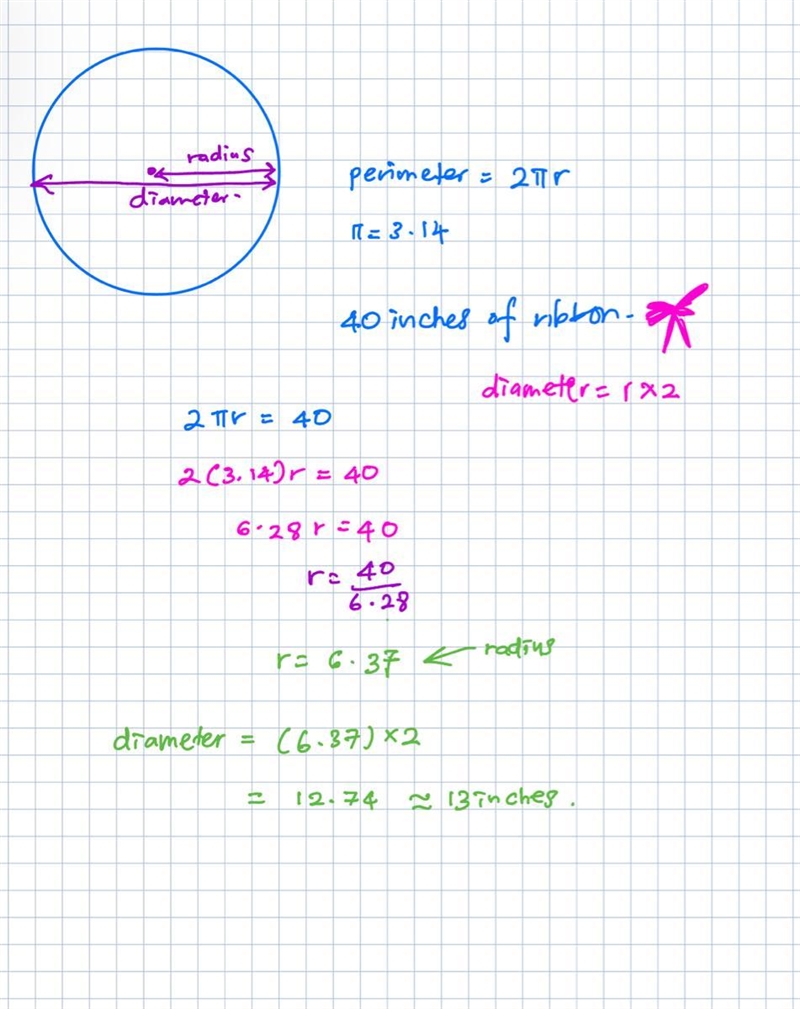 radius
diameter.
perimeter = 2πr
π = 3.14
40 inches of ribbon.
diameter = r × 2
2πr = 40
2(3.14)r = 40
6.28 r = 40
r = 40
6.28
r = 6.37 ← radius
diameter = (6.37) × 2
= 12.74 ≈ 13 inches.